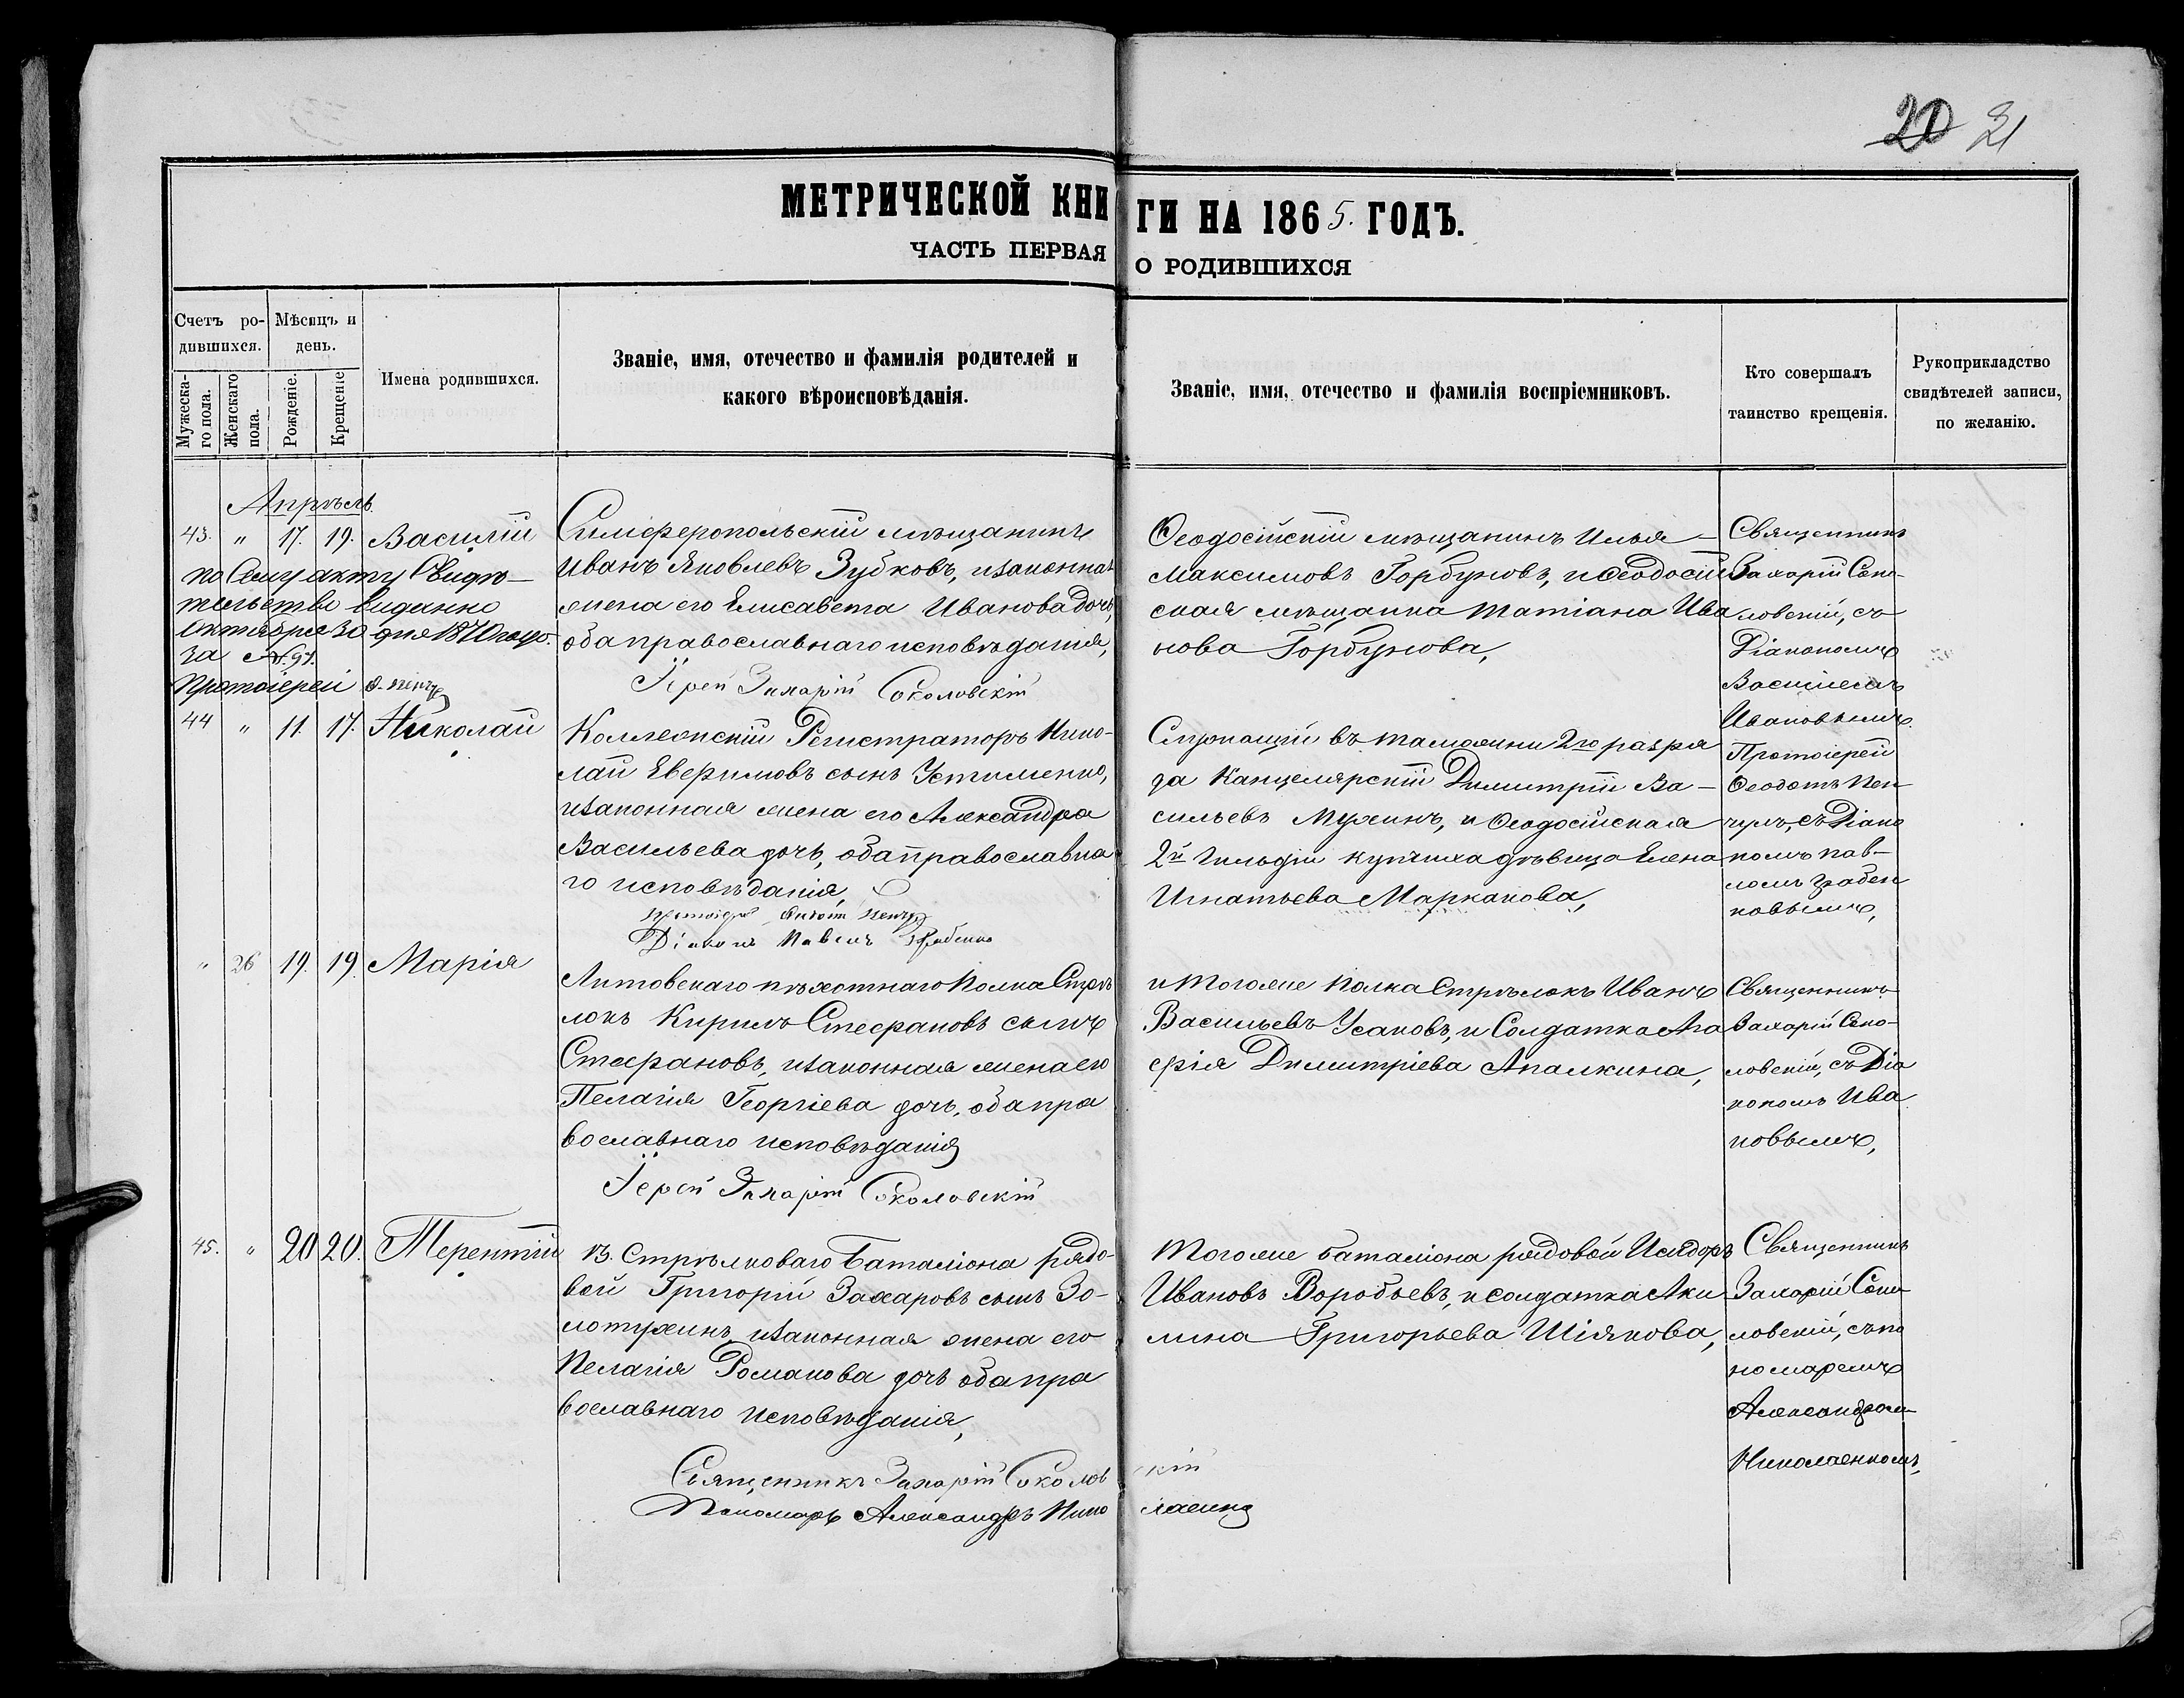 20 21
МЕТРИЧЕСКОЙ КНИГИ НА 1865. ГОДЪ.
ЧАСТЬ ПЕРВАЯ О РОДИВШИХСЯ
Счетъ ро-
дившихся.
Мѣсяцъ и
день.
Мужеска-
го пола.
Женскаго
пола.
Рожденіе.
Крещеніе
Имена родившихся.
Званіе, имя, отечество и фамилія родителей и
какого вѣроисповѣданія.
Званіе, имя, отечество и фамилія воспріемниковъ.
Кто совершалъ
таинство крещенія.
Рукоприкладство
свидѣтелей записи,
по желанію.
Апрѣль
43. " 17. 19. Василій
по Сему акту Свидѣ-
тельство видано
Октября 30 дня 1870 года.
за №. 97.
Протоіерей Ѳ. Пенчулъ
Симферопольскій мѣщанинъ
Иванъ Яковлевъ Зубковъ, изаконная
жена его Елисавета Иванова дочь,
оба православнаго исповѣданія,
Іерей Захарій Соколовскій
Ѳеодосійскій мѣщанинъ Илья
Максимовъ Горбуновъ, и Ѳеодосій
ская мѣщанка Татіана Ива
нова Горбунова,
Священникъ
Захарій Соко-
ловскій, съ
Діакономъ
Василіемъ
Ивановымъ.
44 " 11. 17. Николай
Коллежскій Регистраторъ Нико-
лай Евфимовъ сынъ Устименко,
изаконная жена его Александра
Васильева дочь, оба православна
го исповѣданія,
Протоіерей Ѳеодотъ Пенчулъ
Діаконъ Павелъ Грабенко
Служащій въ таможни 2го разря
да Канцелярскій Димитрій Ва-
сильевъ Мухинъ, и Ѳеодосійская
2й Гильдіи купчиха дѣвица Елена
Игнатьева Маркакова,
Протоіерей
Ѳеодотъ Пен
чулъ, съ Діако
номъ Пав-
ломъ Грабен
ковымъ,
" 26 19. 19. Марія
Литовскаго пѣхотнаго Полка Стрѣ
локъ Кирилъ Стефановъ сынъ
Стефановъ, изаконная жена его
Пелагія Георгіева дочь, оба пра
вославнаго исповѣданія
Іерей Захарій Соколовскій
и Тогоже Полка Стрѣлокъ Иванъ
Васильевъ Усаковъ, и Солдатка Ага
фія Димитріева Апалкина,
Священникъ
Захарій Соко-
ловскій, съ Діа
кономъ Ива
новымъ,
45. " 20 20. Терентій
13. Стрѣлковаго Баталіона рядо-
вой Григорій Захаровъ сынъ Зо-
лотухинъ, изаконная жена его
Пелагія Романова дочь оба пра
вославнаго исповѣданія,
Священникъ Захарій Соколовскій
Пономарь Александръ Николаенко
Тогоже баталіона рядовой Исидоръ
Ивановъ Воробьевъ, и солдатка Аки
лина Григорьева Шіякова,
Священникъ
Захарій Соко
ловскій, съ по
номаремъ
Александром
Николаенкомъ,